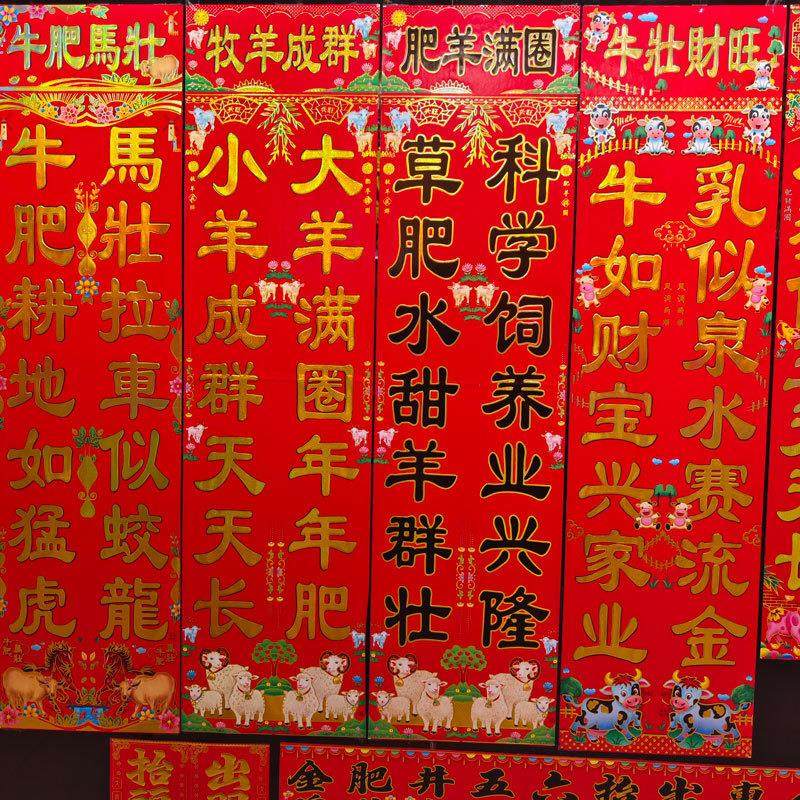 牛肥馬壯
牛肥耕地如猛虎
馬壯拉車似蛟龍
牧羊成群
小羊成群天天长
大羊满圈年年肥
肥羊满圈
草肥水甜羊群壮
科学饲养业兴隆
牛壯財旺
牛如财宝兴家业
乳似泉水赛流金
抬
出
金肥井五六抬出車